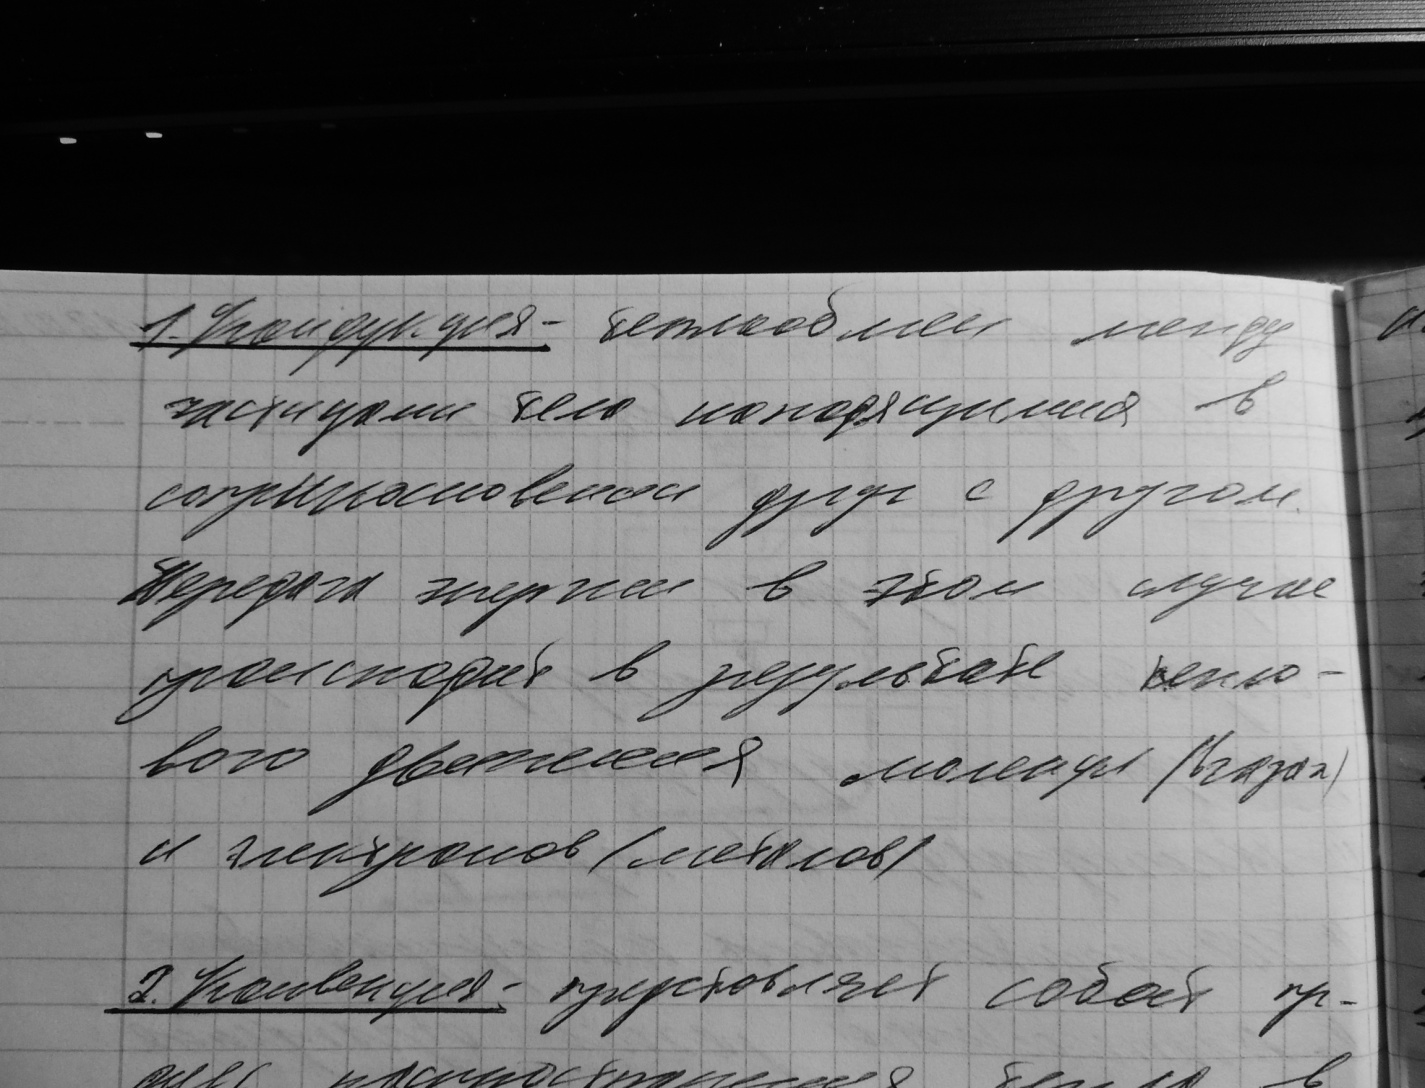 1. Кондукция - теплообмен между
частицами тела находящимися в
соприкосновении друг с другом.
Передача энергии в этом случае
происходит в результате тепло-
вого движения молекул (в газах)
и электронов (металлов)
2. Конвекция - представляет собой пр-
тепла в